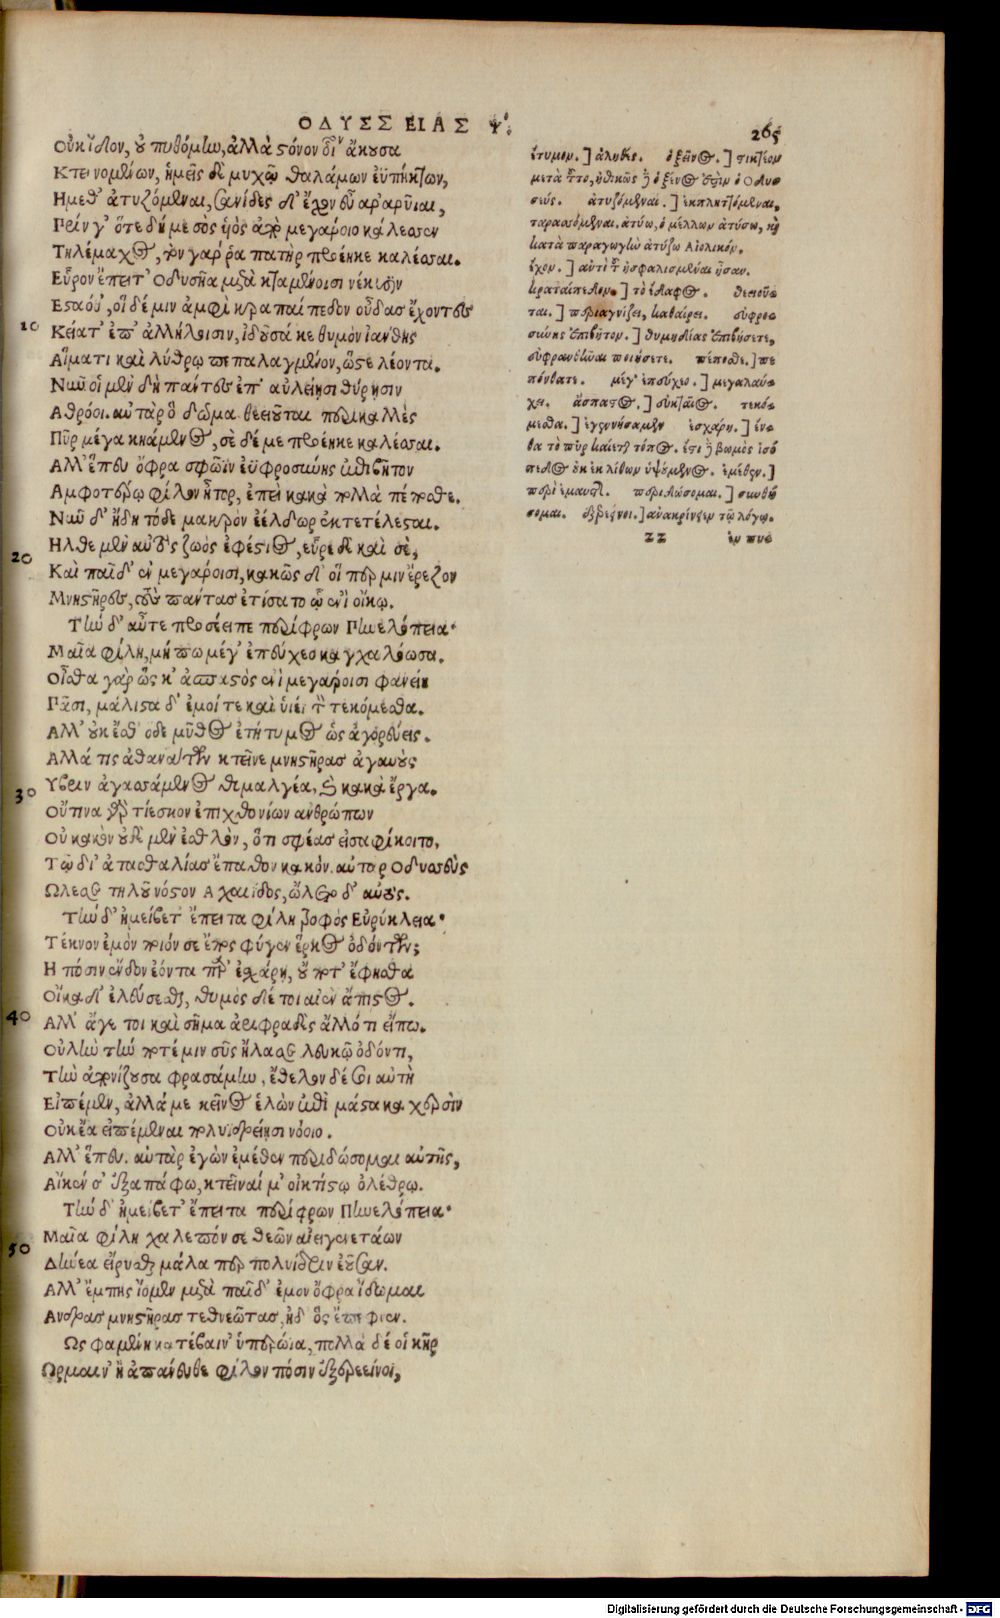 ΟΔΥΣΣΕΙΑΣ Ψ.
265
Οὐκ ἴδον, οὐ πυθόμην, ἀλλὰ στόνον οἶον ἄκουσα
Κτεινομένων, ἡμεῖς δὲ μυχῷ θαλάμων ἐϋπήκτων,
Ἥμεθ' ἀτυζόμεναι, σανίδες δ' ἔχον εὖ ἀραρυῖαι,
Πρίν γ' ὅτε δή με σὸς υἱὸς ἀπὸ μεγάροιο κάλεσσεν
Τηλέμαχος, τὸν γάρ ῥα πατὴρ προέηκε καλέσσαι.
Εὗρον ἔπειτ' Ὀδυσῆα μετὰ κταμένοισι νέκυσιν
Ἑσταόθ', οἱ δέ μιν ἀμφὶ κραταίπεδον οὖδας ἔχοντες
10 Κείατ' ἐπ' ἀλλήλοισιν, ἰδοῦσά κε θυμὸν ἰάνθης
Αἵματι καὶ λύθρῳ πεπαλαγμένον, ὥστε λέοντα.
Νῦν οἱ μὲν δὴ πάντες ἐπ' αὐλείῃσι θύρῃσιν
Ἀθρόοι. αὐτὰρ ὃ δῶμα θεειοῦται περικαλλὲς
Πῦρ μέγα κηάμενος, σὲ δέ με προέηκε καλέσσαι.
Ἀλλ' ἕπευ ὄφρα σφῶϊν ἐϋφροσύνης ἐπιβῆτον
Ἀμφοτέρω φίλον ἦτορ, ἐπεὶ κακὰ πολλὰ πέποσθε.
Νῦν δ' ἤδη τόδε μακρὸν ἐέλδωρ ἐκτετέλεσται.
Ἦλθε μὲν αὐτὸς ζωὸς ἐφέστιος, εὗρε δὲ καὶ σὲ,
20 Καὶ παῖδ' ἐν μεγάροισι, κακῶς δ' οἵ πέρ μιν ἔρεζον
Μνηστῆρες, τοὺς πάντας ἐτίσατο ᾧ ἐνὶ οἴκῳ.
Τὴν δ' αὖτε προσέειπε περίφρων Πηνελόπεια·
Μαῖα φίλη, μή πω μέγ' ἐπεύχεο καγχαλόωσα.
Οἶσθα γὰρ ὥς κ' ἀσπαστὸς ἐνὶ μεγάροισι φανείη
Πᾶσι, μάλιστα δ' ἐμοί τε καὶ υἱέϊ τὸν τεκόμεσθα.
Ἀλλ' οὐκ ἔσθ' ὅδε μῦθος ἐτήτυμος ὡς ἀγορεύεις.
Ἀλλά τις ἀθανάτων κτεῖνε μνηστῆρας ἀγαυοὺς
30 Ὕβριν ἀγασσάμενος θυμαλγέα, καὶ κακὰ ἔργα.
Οὔτινα γὰρ τίεσκον ἐπιχθονίων ἀνθρώπων
Οὐ κακὸν οὐδὲ μὲν ἐσθλὸν, ὅτι σφέας εἰσαφίκοιτο.
Τῷ δι' ἀτασθαλίας ἔπαθον κακόν. αὐτὰρ Ὀδυσσεὺς
Ὤλεσε τηλοῦ νόστον Ἀχαιΐδος, ὤλετο δ' αὐτός.
Τὴν δ' ἠμείβετ' ἔπειτα φίλη τροφὸς Εὐρύκλεια·
Τέκνον ἐμὸν ποῖόν σε ἔπος φύγεν ἕρκος ὀδόντων;
Ἣ πόσιν ἔνδον ἐόντα παρ' ἐσχάρῃ, οὔ ποτ' ἔφησθα
Οἴκαδ' ἐλεύσεσθαι, θυμὸς δέ τοι αἰὲν ἄπιστος.
40 Ἀλλ' ἄγε τοι καὶ σῆμα ἀριφραδὲς ἄλλό τι εἴπω.
Οὐλὴν τήν ποτέ μιν σῦς ἤλασε λευκῷ ὀδόντι,
Τὴν ἀπονίζουσα φρασάμην, ἔθελον δέ σοι αὐτὴ
Εἰπέμεν, ἀλλά με κεῖνος ἑλὼν ἐπὶ μάστακα χερσὶν
Οὐκ ἔα εἰπέμεναι πολυϊδρείῃσι νόοιο.
Ἀλλ' ἕπευ. αὐτὰρ ἐγὼν ἐμέθεν περιδώσομαι αὐτῆς,
Αἴκεν σ' ἐξαπάφω, κτεῖναί μ' οἰκτίστῳ ὀλέθρῳ.
Τὴν δ' ἠμείβετ' ἔπειτα περίφρων Πηνελόπεια·
Μαῖα φίλη χαλεπόν σε θεῶν αἰειγενετάων
50 Δήνεα εἴρυσθαι μάλα περ πολύϊδριν ἐοῦσαν.
Ἀλλ' ἔμπης ἴομεν μετὰ παῖδ' ἐμὸν ὄφρα ἴδωμαι
Ἄνδρας μνηστῆρας τεθνεῶτας, ἠδ' ὃς ἔπεφνεν.
Ὣς φαμένη κατέβαιν' ὑπερώϊα, πολλὰ δέ οἱ κῆρ
Ὥρμαιν' ἢ ἀπάνευθε φίλον πόσιν ἐξερεείνοι,
ἔτυμον.] ἀληθὲς. ὁ ξεῖνος.] στικτέον
μετὰ τοῦτο, ἠθικῶς γὰρ ὁ ξεῖνος ἐστὶν ὁ Ὀδυσ
σεύς. ἀτυζόμεναι.] ἐκπληττόμεναι,
ταρασσόμεναι. ἀτύω, ὁ μέλλων ἀτύσω, καὶ
κατὰ παραγωγὴν ἀτύζω Αἰολικόν.
ἔχον.] αὐτὶ τοῦ ἠσφαλισμέναι ἦσαν.
κραταίπεδον.] τὸ ἔδαφος. θεειοῦ
ται.] περιαγνίζει, καθαίρει. εὐφρο
σύνης ἐπιβῆτον.] θυμηδίας ἐπιβήσετε,
εὐφρανθῆναι ποιήσετε. πέποσθε.] πε
πόνθατε. μέγ' ἐπεύχεο.] μεγαλαύ
χει. ἀσπαστος.] εὐκταῖος. τεκό
μεσθα.] ἐγεννήσαμεν ἐσχάρη.] ἔν
θα τὸ πῦρ καίεται τόπος. ἔστι γὰρ βωμὸς ἰσό
πεδος οὐκ ἐκ λίθων ὑψούμενος. ἐμέθεν.]
περὶ ἐμαυτῆς. περιδώσομαι.] συνθή
σομαι. ἐξερεείνοι.] ἀνακρίνειεν τῷ λόγῳ.
ZZ ἐν πυ
Digitalisierung gefördert durch die Deutsche Forschungsgemeinschaft - DFG